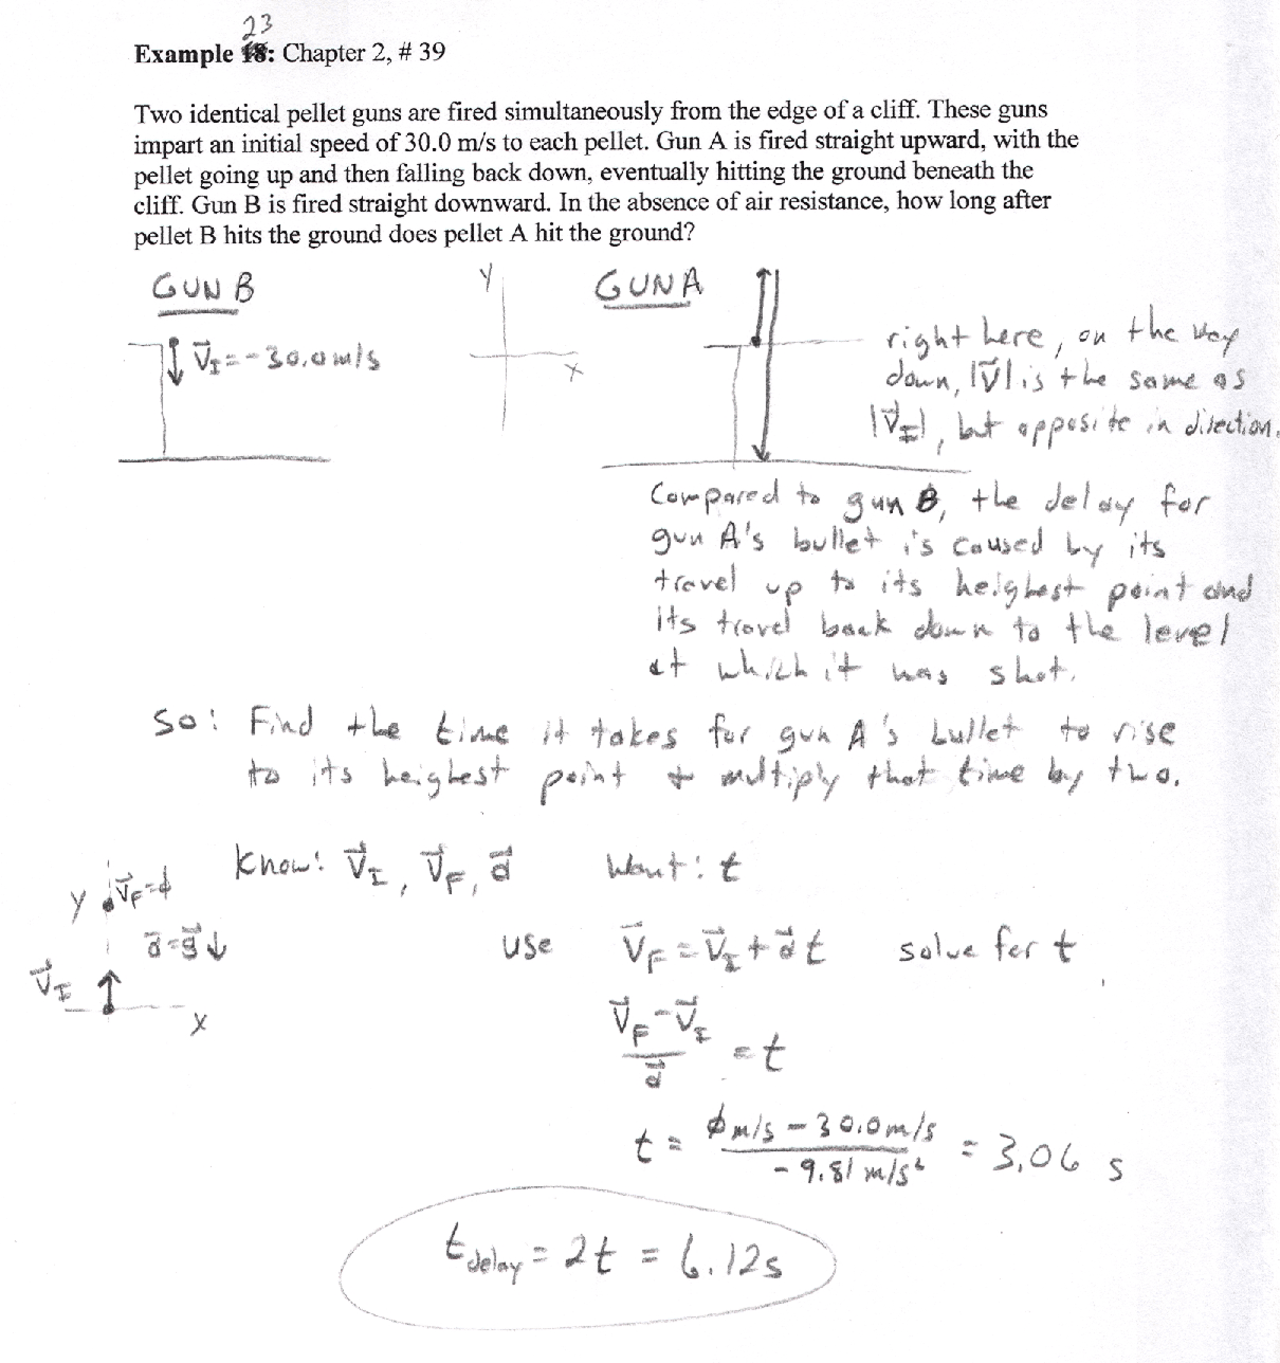 23
Example 18: Chapter 2, # 39
Two identical pellet guns are fired simultaneously from the edge of a cliff. These guns
impart an initial speed of 30.0 m/s to each pellet. Gun A is fired straight upward, with the
pellet going up and then falling back down, eventually hitting the ground beneath the
cliff. Gun B is fired straight downward. In the absence of air resistance, how long after
pellet B hits the ground does pellet A hit the ground?
GUN B
V⃗_I = -30.0 m/s
Y
X
GUN A
right here, on the way
down, |V⃗| is the same as
|V⃗_I|, but opposite in direction.
Compared to gun B, the delay for
gun A's bullet is caused by its
travel up to its heighest point and
its travel back down to the level
at which it was shot.
So: Find the time it takes for gun A's bullet to rise
to its heighest point + multiply that time by two.
Know: V⃗_I, V⃗_F, a⃗ Want: t
y V⃗_F=ϕ
a⃗=g⃗↓
V⃗_I
X
use V⃗_F = V⃗_I + a⃗t solve for t
V⃗_F - V⃗_I / a⃗ = t
t = ϕ m/s - 30.0 m/s / -9.81 m/s² = 3.06 s
t_delay = 2t = 6.12s